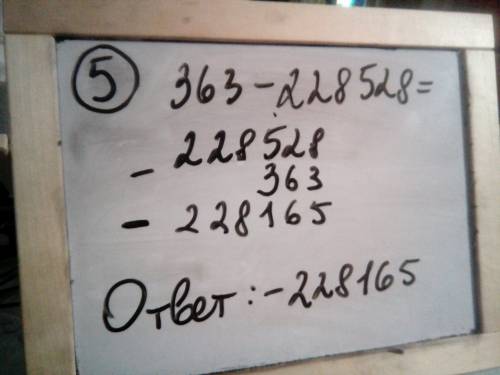 5 363-228528=
228528
- 363
- 228165
Ответ:-228165